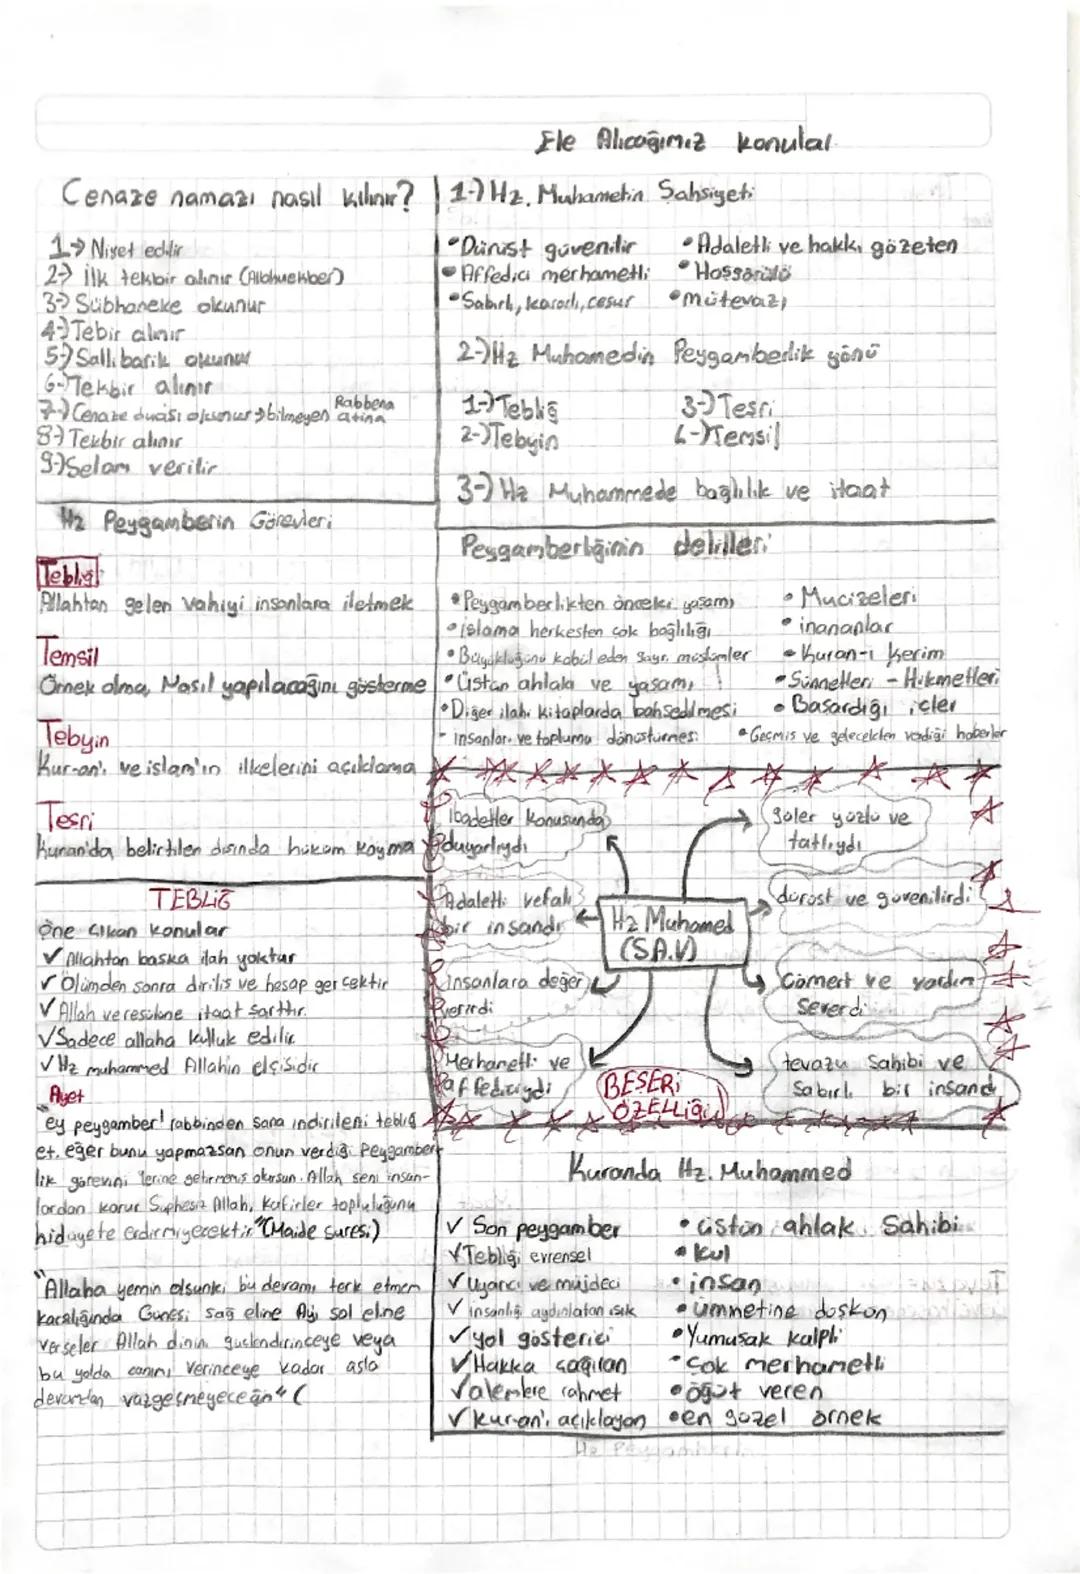 Ele Alıcağımız konular
Cenaze namazı nasıl kılınır?
1-> Niyet edilir
2-> İlk tekbir alınır (Allahuekber)
3-> Sübhaneke okunur
4-) Tebir alınır
5-) Salli barik okunur
6-) Tekbir alınır
7-) Cenaze duası okunur → bilmeyen Rabbena atina
8-) Tekbir alınır
9-) Selam verilir
Hz Peygamberin Görevleri
Tebliğ
Allahtan gelen vahiyi insanlara iletmek
Temsil
Örnek olma, Nasıl yapılacağını gösterme
Tebyin
Kur-an'ı ve islam'ın ilkelerini açıklama
Teşri
Kuran'da belirtilen dışında hüküm koyma
TEBLİĞ
öne çıkan konular
✓ Allahtan başka ilah yoktur
✓ Ölümden sonra diriliş ve hesap gerçektir
✓ Allah ve resulüne itaat şarttır.
✓ Sadece allaha kulluk edilir
✓ Hz muhammed Allahın elçisidir
Ayet
"ey peygamber! rabbinden sana indirileni tebliğ
et. eğer bunu yapmazsan onun verdiği Peygamber
lik görevini yerine getirmemiş olursun. Allah seni insan-
lardan korur Şüphesiz Allah, Kafirler topluluğunu
hidayete erdirmiyecektir" (Maide suresi)
"Allaha yemin olsunki bu devamı terk etmem
karşılığında Güneşi sağ elime Ayı sol elime
verseler Allah dinini güçlendirinceye veya
bu yolda canımı verinceye kadar asla
devamdan vazgeçmeyeceğin" (
1-) Hz. Muhametin Şahsiyeti
• Dürüst güvenilir
• Affedici merhametli
• Sabırlı, kararlı, cesur
• Adaletli ve hakkı gözeten
• Hoşgörülü
• mütevazi
2-) Hz Muhamedin Peygamberlik yönü
1-) Tebliğ
2-) Tebyin
3-) Teşri
4-) Temsil
3-) Hz Muhammede bağlılık ve itaat
Peygamberliğinin delilleri
• Peygamberlikten önceki yaşamı
• islama herkesten çok bağlılığı
• Büyüklüğünü kabül eden gayr. müslümler
• Üstün ahlakı ve yaşamı
• Diğer ilahi kitaplarda bahsedilmesi
- insanları ve toplumu dönüştürmesi
• Mucizeleri
• inananlar
• Kuran-ı Kerim
• Sünnetleri - Hikmetleri
• Başardığı işler
• Geçmiş ve gelecekten verdiği haberler
ibadetler konusunda
duyarlıydı
güler yüzlü ve
tatlıydı
Adaletli vefalı
bir insandı
Hz Muhamed
(S.A.V)
dürüst ve güvenilirdi
insanlara değer
verirdi
Cömert ve yardım
Severdi
Merhametli ve
affediciydi
BEŞERİ
ÖZELLİĞİ
tevazu Sahibi ve
Sabırlı bir insandı
Kuranda Hz. Muhammed
✓ Son peygamber
✓ Tebliği evrensel
✓ Uyarıcı ve müjdeci
✓ insanlığı aydınlatan ışık
✓ yol gösterici
✓ Hakka çağıran
✓ alemlere rahmet
✓ kur-an'ı açıklayan
• üstün ahlak Sahibi
• kul
• insan
• ümmetine düşkün
• Yumuşak kalpli
• çok merhametli
• öğüt veren
• en güzel örnek